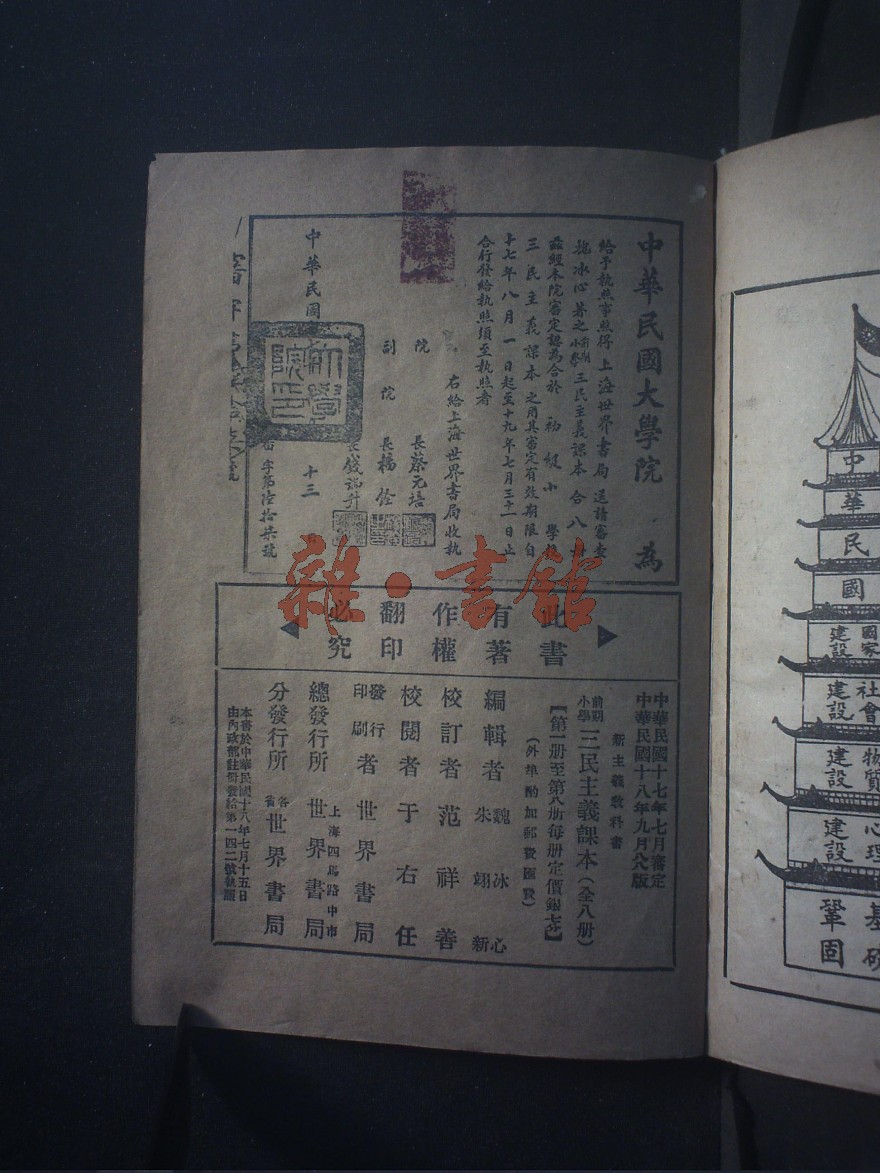 中華民國大學院 為
給予執照事照得上海世界書局送請審查
魏冰心著之前期小學三民主義課本合八
茲經本院審定認為合於初級小學校
三民主義課本之用其審定有效期限自
十七年八月一日起至十九年七月三十一日止
合行發給執照須至執照者
右給上海世界書局收執
院長蔡元培
副院長楊銓
長錢端升
中華民國
十三
字第陸拾柒號
此書有著作權翻印必究
中華民國十七年七月審定
中華民國十八年九月八版
新主義教科書
前期小學三民主義課本(全八册)
【第一册至第八册每册定價銀七分】
(外埠酌加郵費匯費)
編輯者 魏冰心 朱翊新
校訂者 范祥善
校閱者 于右任
印刷發行者 世界書局
上海四馬路中市
總發行所 世界書局
分發行所 各省世界書局
本書於中華民國十八年七月十五日
由內政部註册發給第一四二號執照
雜·書館
中
華
民
國
國家建設
社會建設
物質建設
心理建設
鞏固基礎